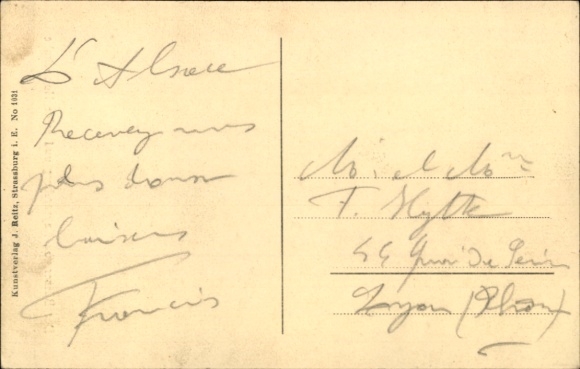 Kunstverlag J. Reitz, Strassburg i. E. No 1031
L'Alsace
Recevez mes
plus doux
baisers
Francis
Mr et Mme
F.
Quai de
Lyon (Rhône)